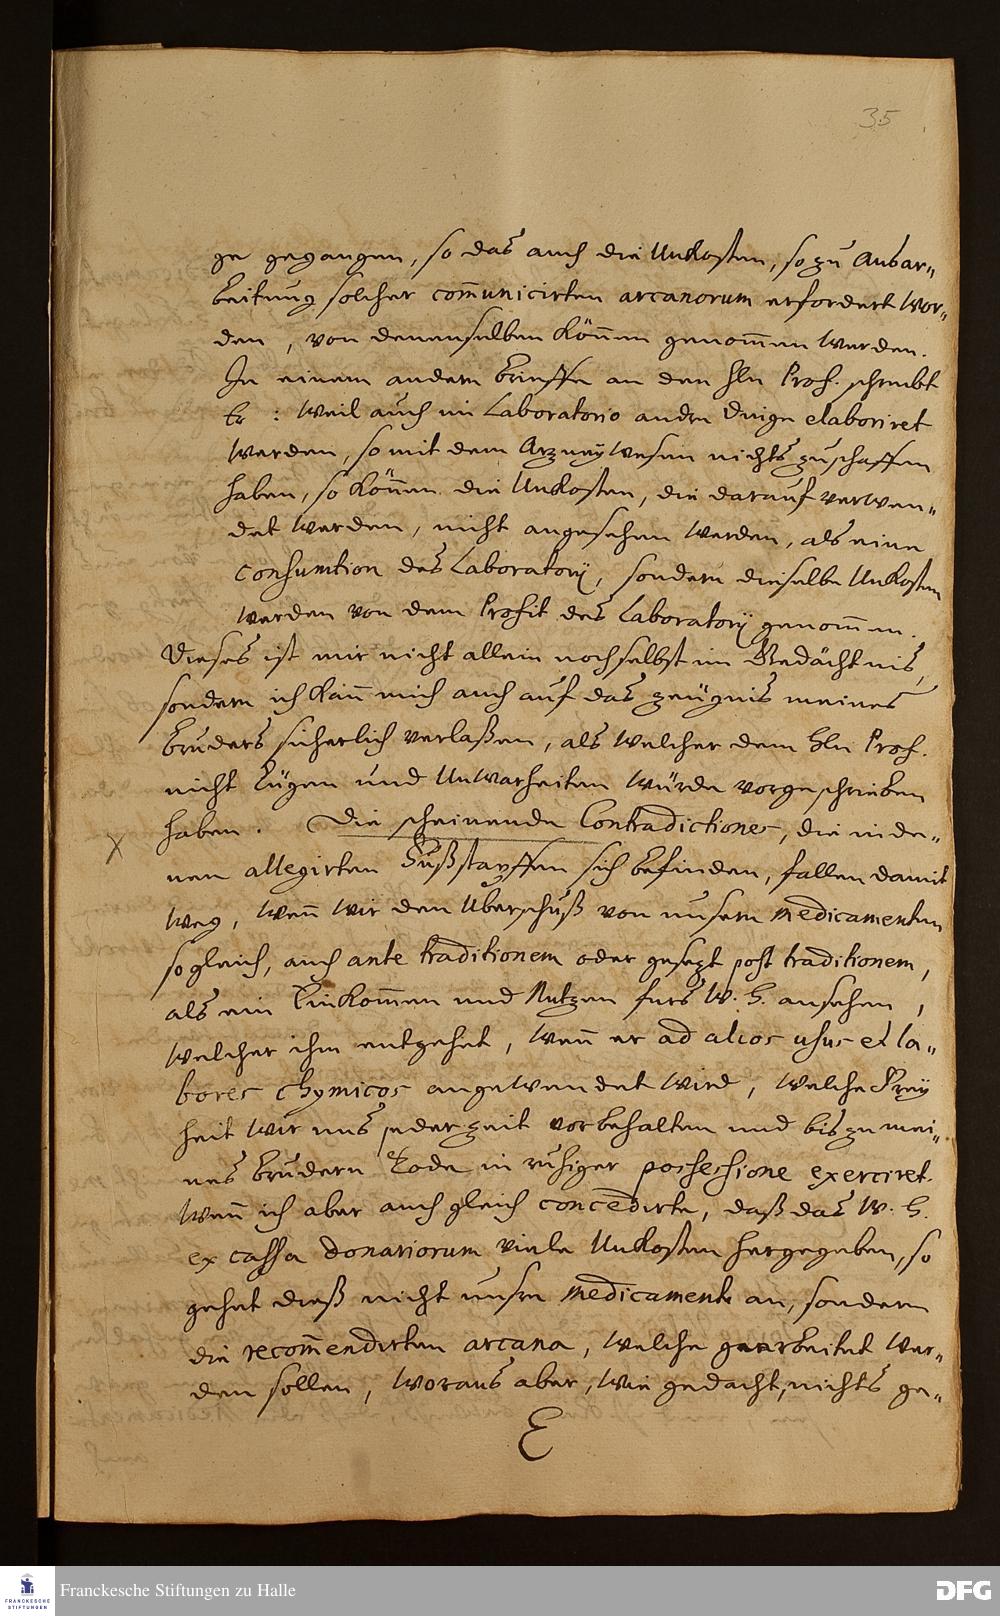 35
ge gegangen, so das auch die Unkosten, so zu Ausar„
beitung solcher com̄unicirten arcanorum erfordert wor„
den, von denenselben kön̄en genom̄en werden.
In einem andern brieffe an den Hln Prof. schreibt
Er: Weil auch im Laboratorio andre Dinge elaboriret
werden, so mit dem Arzneywesen nichts zuschaffen
haben, so kön̄en die Unkosten, die darauf verwen„
det werden, nicht angesehen werden, als eine
Consumtion des Laboratorij, sondern dieselbe Unkosten
werden von dem Profit des Laboratorij genom̄en.
Dieses ist mir nicht allein noch selbst im Gedächtnis,
sondern ich kan̄ mich auch auf das zeügnis meines
bruders sicherlich verlaßen, als welcher dem Hln Prof.
nicht Lügen und Unwarheiten würde vorgeschrieben
haben. Die scheinende Contradictiones, die in de„
nen allegirten Fußstapffen sich befinden, fallen damit
weg, wen̄ wir den Uberschuß von unsern Medicamenten
sogleich, auch ante traditionem oder gesezt post traditionem,
als ein Einkom̄en und Nutzen furs W. H. ansehen,
welcher ihm entgehet, wen̄ er ad alios usus et la„
bores chymicos angewendet wird, welche Frey
heit wir uns jederzeit vorbehalten und bis zu mei„
nes brudern Tode in ruhiger possessione exerciret.
Wen̄ ich aber auch gleich concedirte, daß das W. H.
ex cassa donariorum viele Unkosten hergegeben, so
gehet dieß nicht unsre Medicamente an, sondern
die recom̄endirten arcana, welche gearbeitet wer„
den sollen, woraus aber, wie gedacht, nichts ge„
E
Franckesche Stiftungen zu Halle
FRANCKESCHE
STIFTUNGEN
DFG